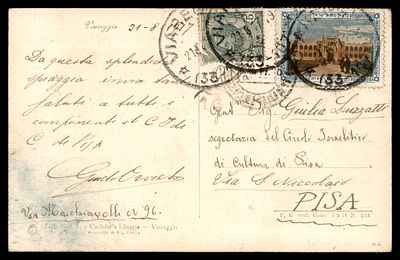 Viareggio 21-8
Da questa splendida
spiaggia invia tanti
saluti a tutti i
componenti il C I di
C. di Pisa
Guido
Via Macchiavelli N. 96.
e Cartoleria Libreria - Viareggio
VIAREGGIO
(33
Gent. Sig. Giulia Luzzatti
segretaria del Circolo Israelitico
di Cultura di Pisa
Via S. Niccolaio
PISA